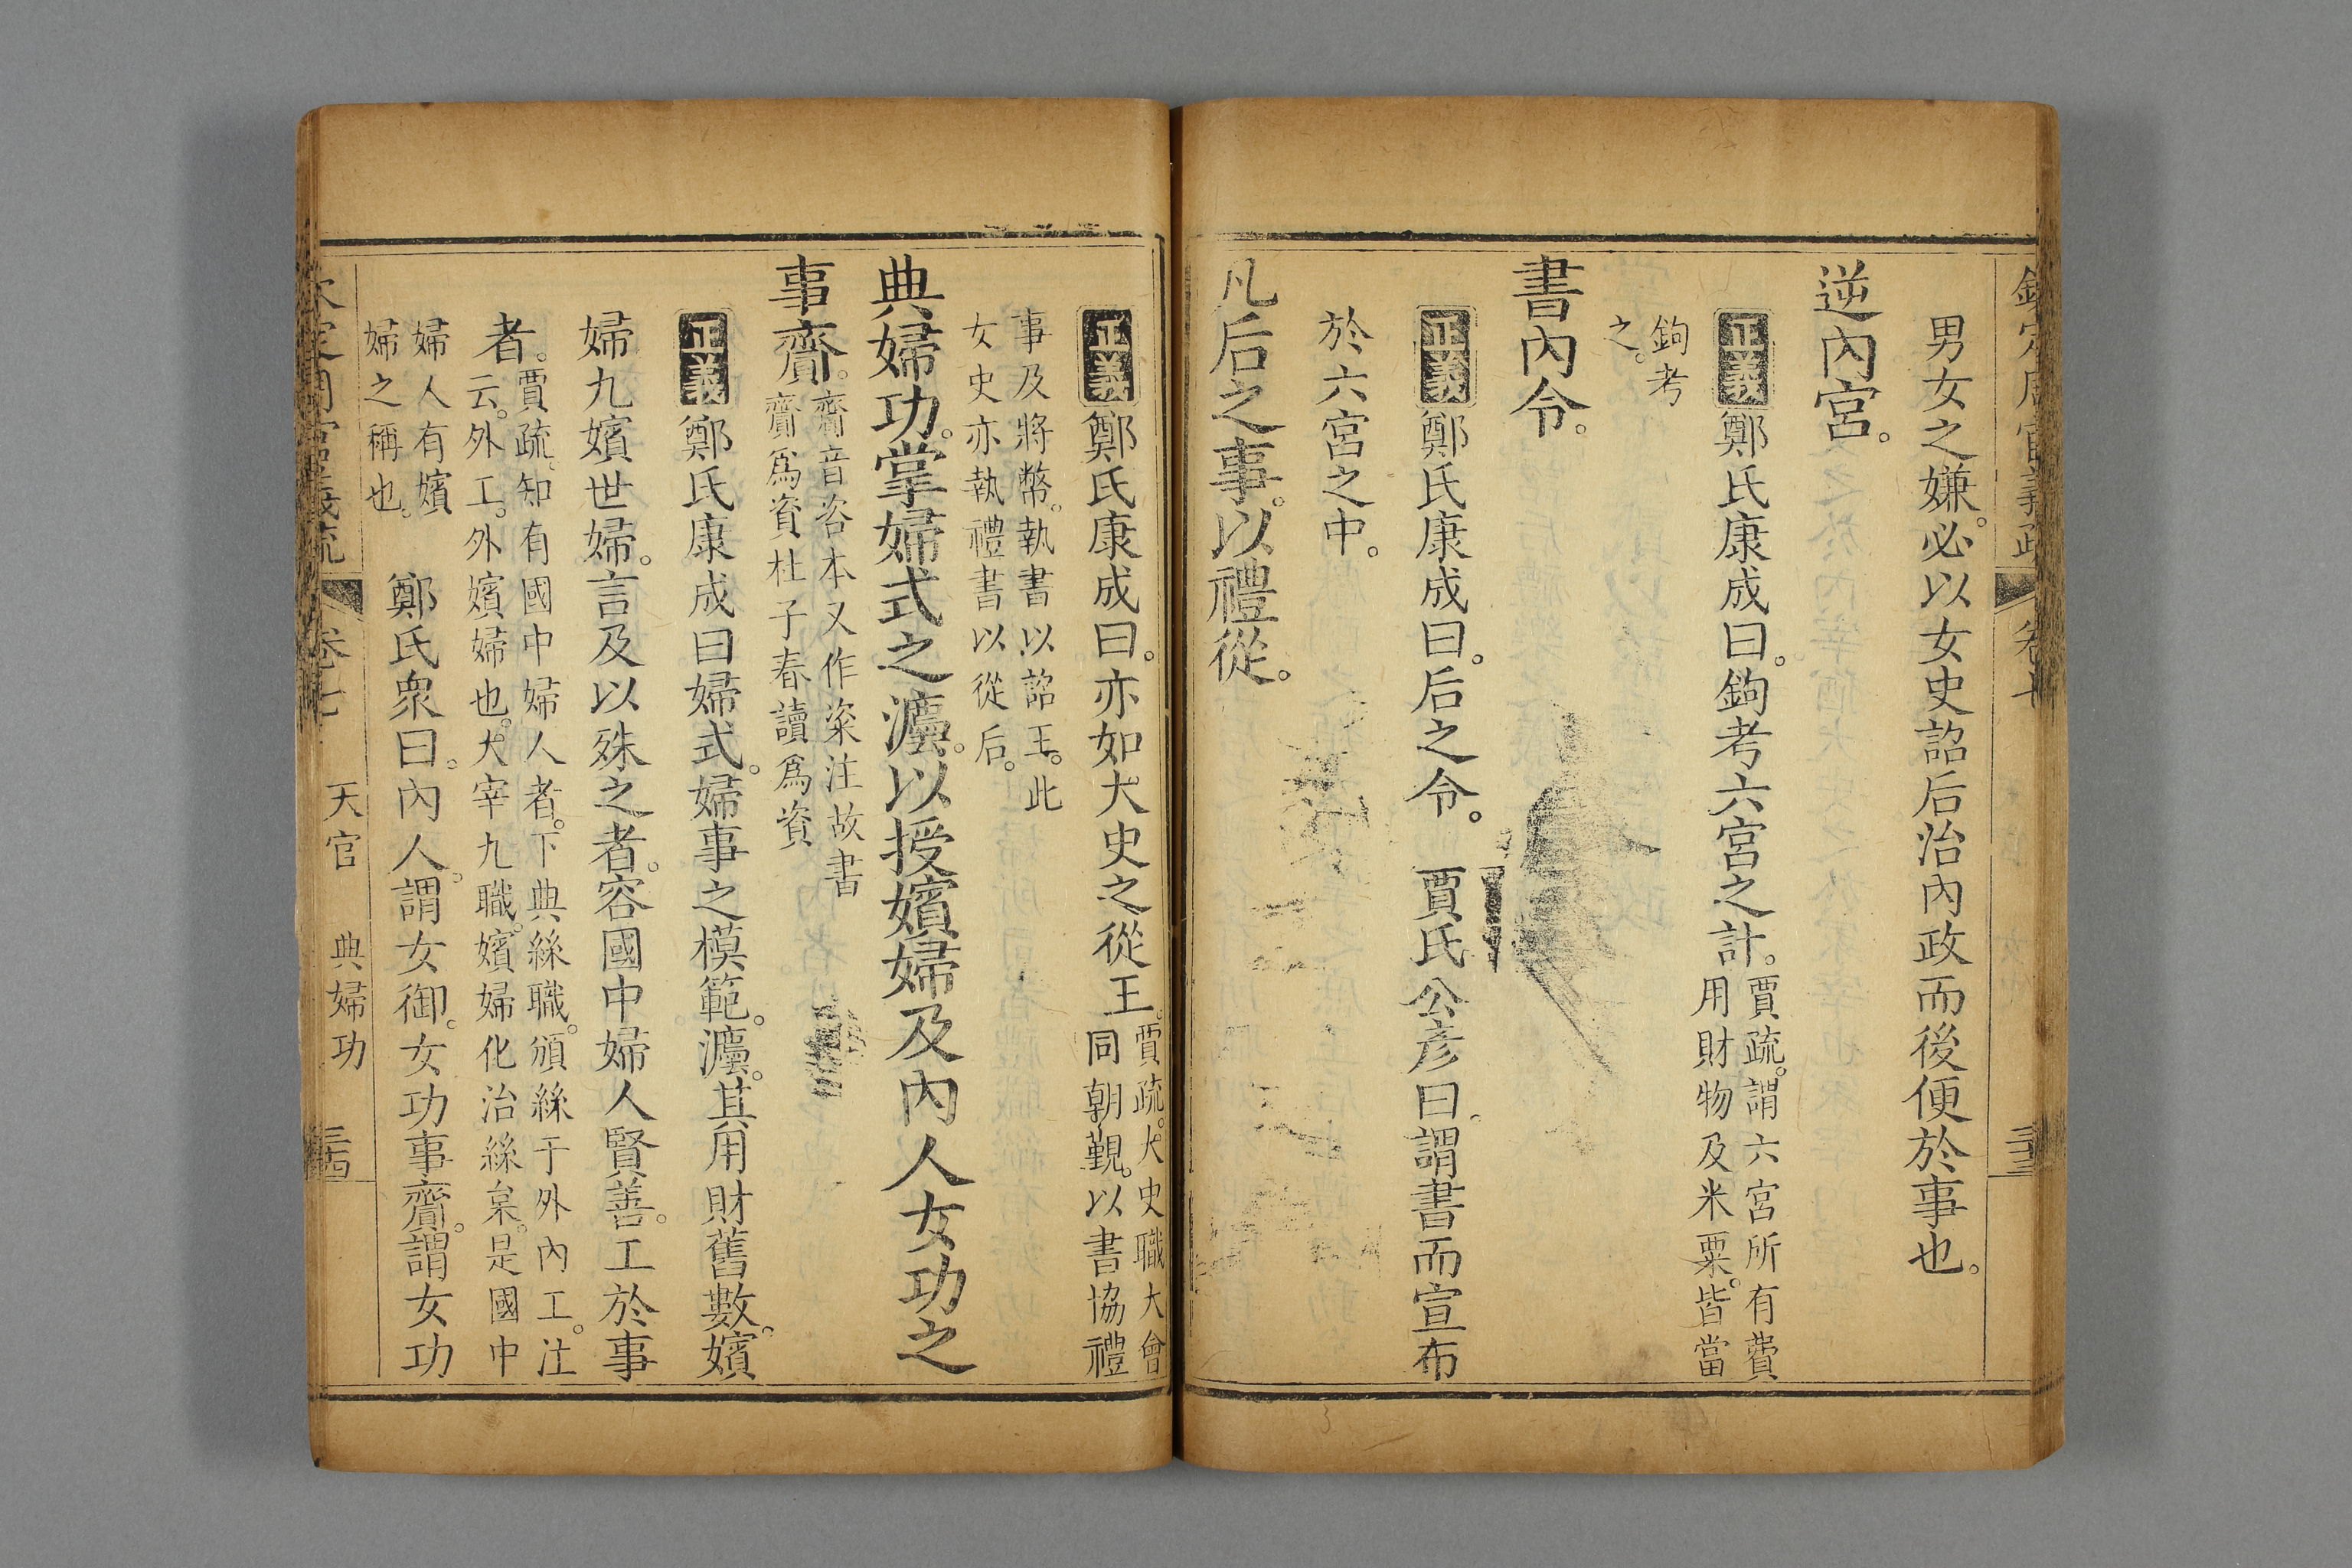 欽定周官義疏 卷七 三十三
男女之嫌。必以女史詔后治內政而後便於事也。
逆內宮。
正義 鄭氏康成曰。鉤考六宮之計。賈疏。謂六宮所有費
用財物及米粟。皆當
鉤考
之。
書內令。
正義 鄭氏康成曰。后之令。 賈氏公彥曰。謂書而宣布
於六宮之中。
凡后之事。以禮從。
正義 鄭氏康成曰。亦如大史之從王。賈疏。大史職大會
同朝覲。以書協禮
事及將幣。執書以詔王。此
女史亦執禮書以從后。
典婦功。掌婦式之灋。以授嬪婦及內人女功之
事齎。齎音咨本又作粢注故書
齎爲資杜子春讀爲資
正義 鄭氏康成曰婦式。婦事之模範。灋。其用財舊數。嬪
婦九嬪世婦。言及以殊之者。容國中婦人賢善。工於事
者。賈疏。知有國中婦人者。下典絲職。頒絲于外內工。注
云。外工。外嬪婦也。大宰九職。嬪婦化治絲枲。是國中
婦人有嬪
婦之稱也。
鄭氏衆曰。內人。謂女御。女功事齎。謂女功
欽定周官義疏 卷七 天官 典婦功 三十四